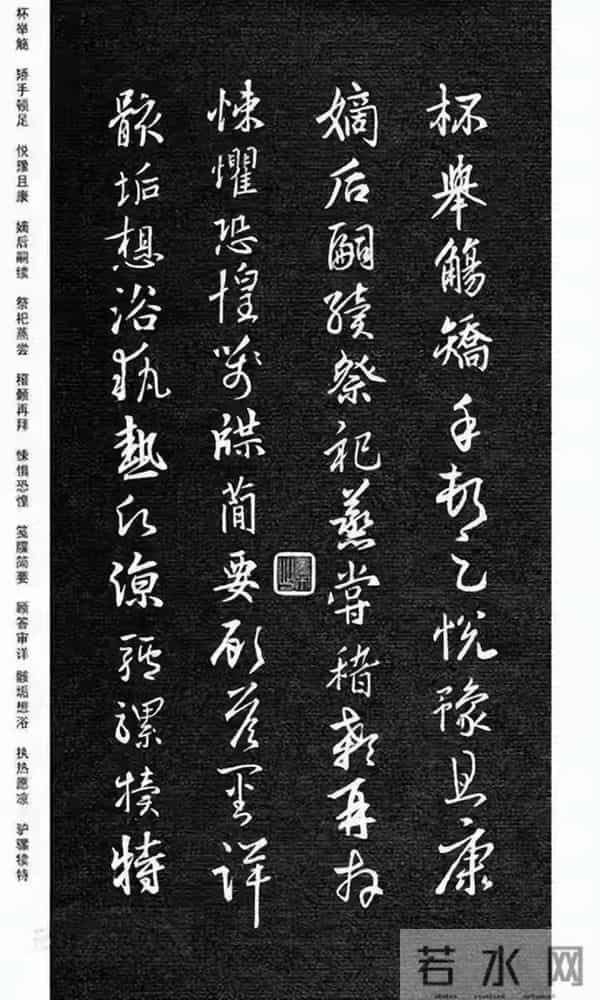 杯舉觴矯手頓足悅豫且康
嫡后嗣續祭祀蒸嘗稽顙再拜
悚懼恐惶牋牒簡要顧答審詳
骸垢想浴執熱願凉驢騾犢特
杯举觞 矫手顿足 悦豫且康 嫡后嗣续 祭祀蒸尝 稽颡再拜 悚惧恐惶 笺牒简要 顾答审详 骸垢想浴 执热愿凉 驴骡犊特
若水网